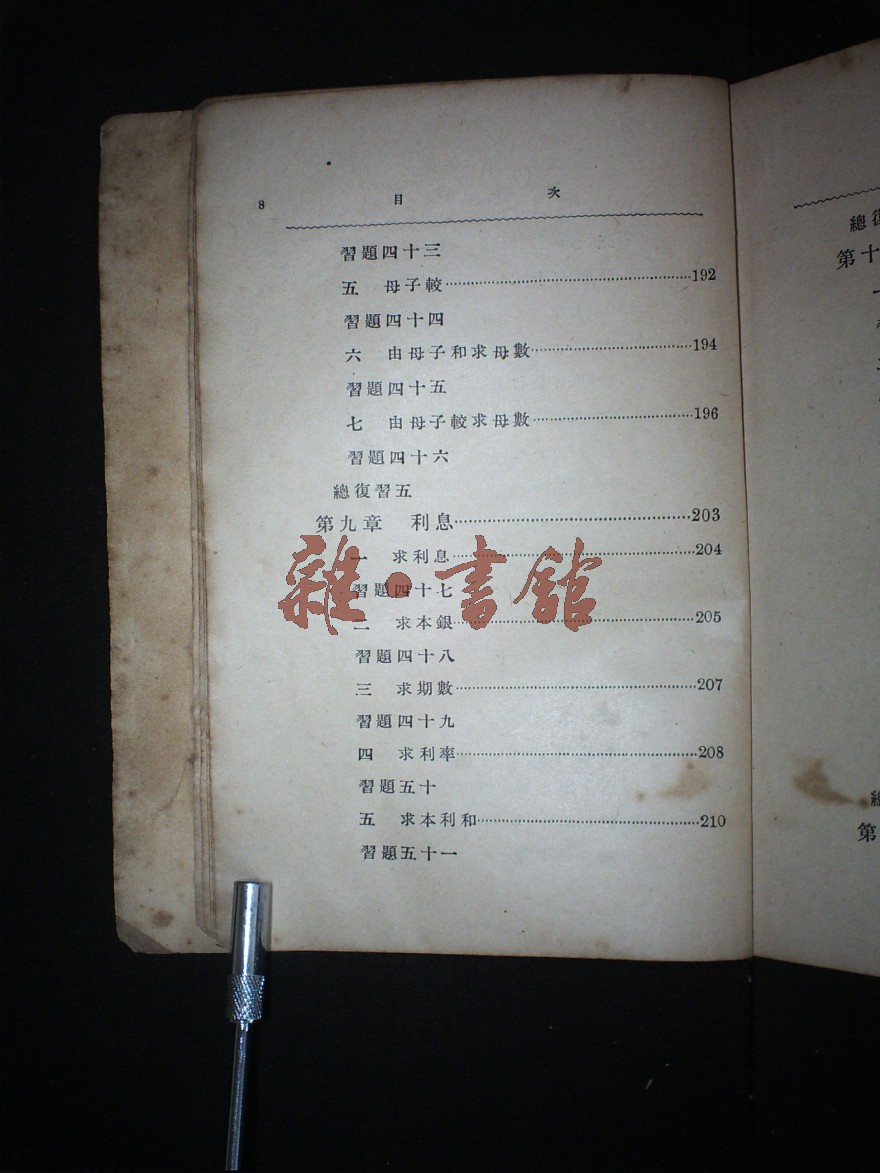 8 目 次
習題四十三
五 母子較……192
習題四十四
六 由母子和求母數……194
習題四十五
七 由母子較求母數……196
習題四十六
總復習五
第九章 利息……203
一 求利息……204
習題四十七
二 求本銀……205
習題四十八
三 求期數……207
習題四十九
四 求利率……208
習題五十
五 求本利和……210
習題五十一
雜·書館
總復
第十
一
第